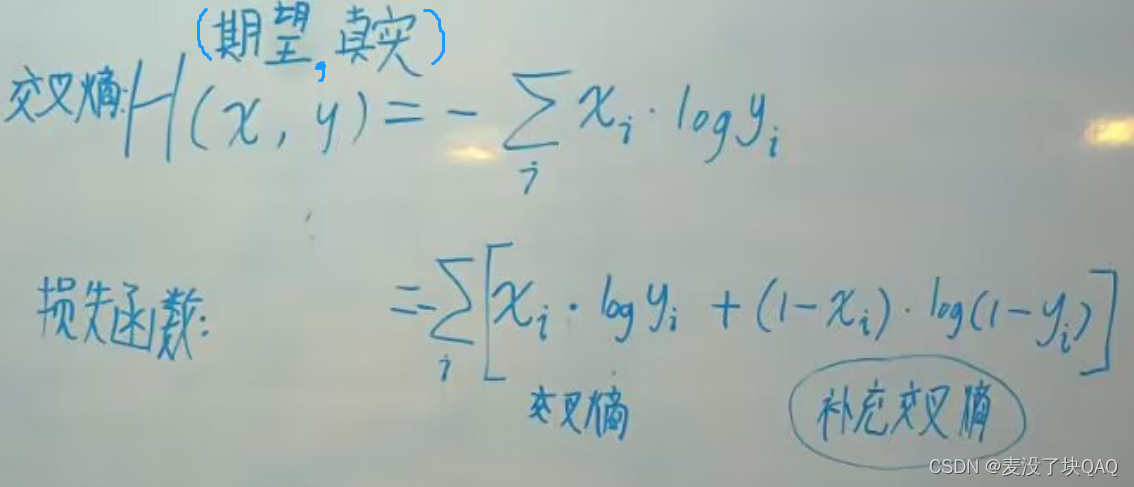 (期望,真实)
交叉熵:H(x, y) = - ∑_i x_i · log y_i
损失函数: = -∑_i [x_i · log y_i + (1-x_i) · log(1-y_i)]
交叉熵 补充交叉熵
CSDN @麦没了块QAQ